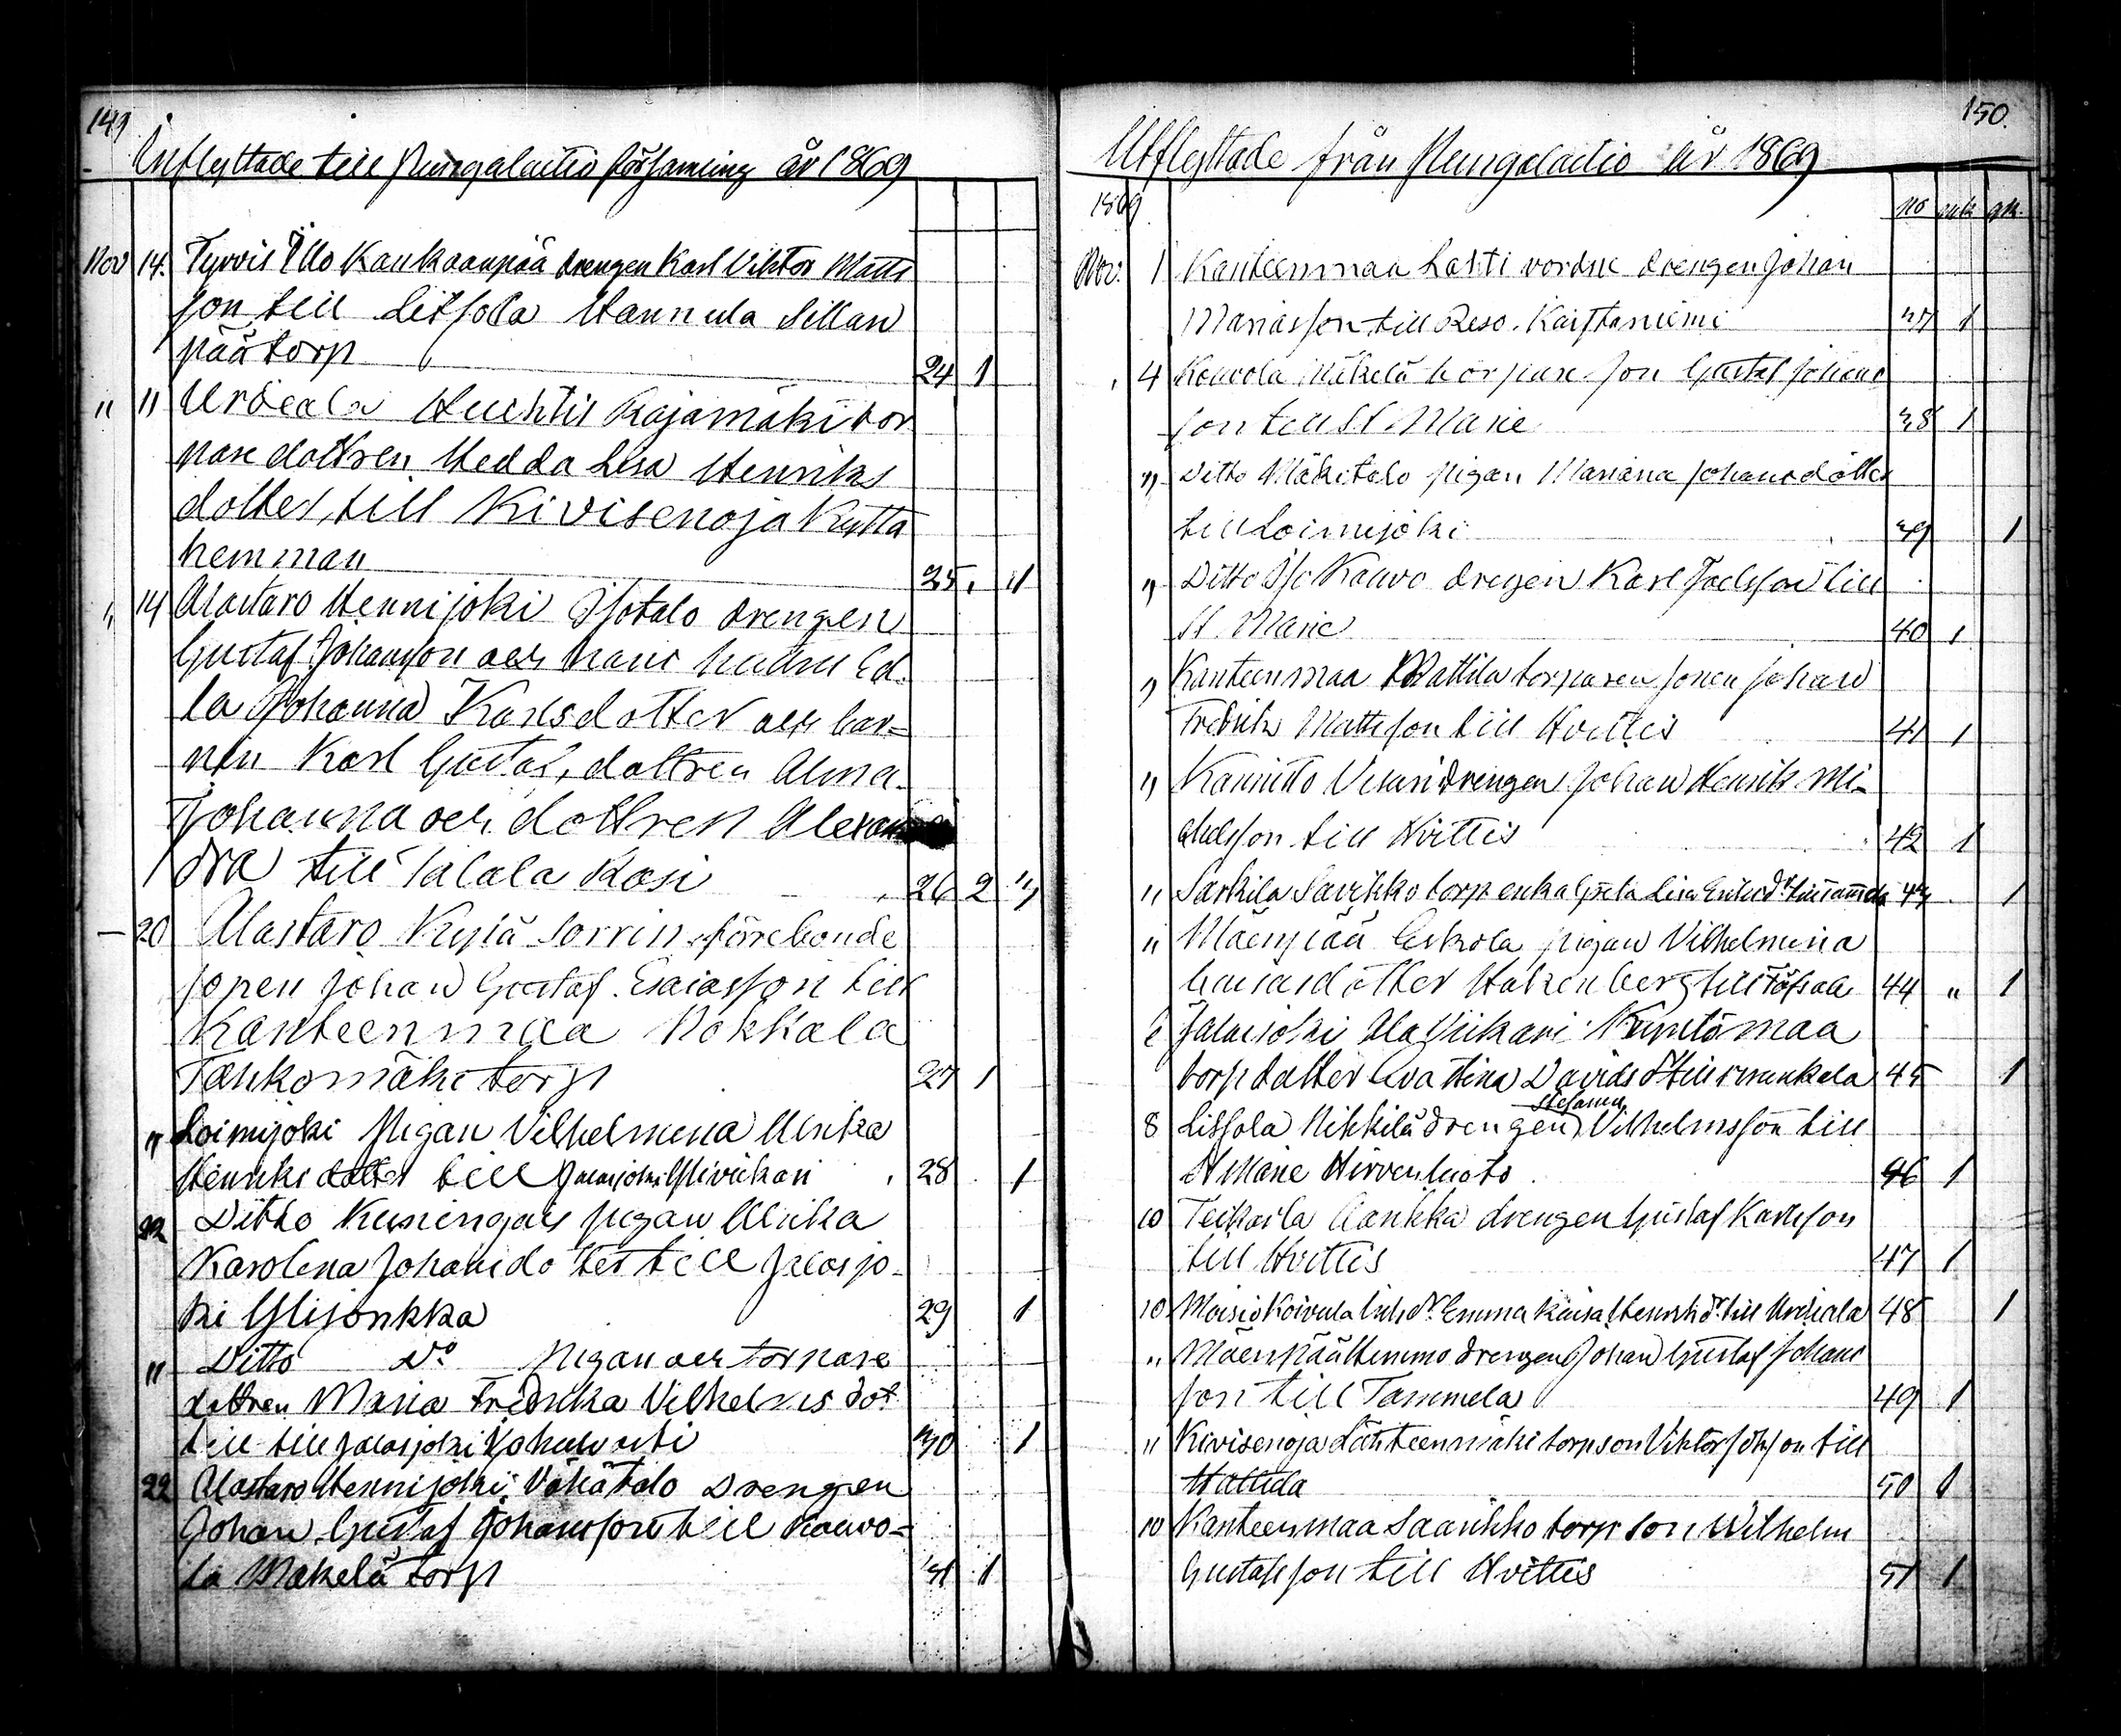 149
Inflyttade till Pungalaitio församling år 1869
Nov 14. Tyrvis Illo Kankaanpää drengen Karl Viktor Matts
son till Litsola Hannula Sillan
päätorp 24 1
" 11 Urdeala Huhtis Rajamäki tor
pare dottren Hedda Lisa Henriks
dotter, till Kivisenoja Kyttä
hemman 25. 1
" 14 Alastaro Hennijoki Isotalo drengen
Gustaf Johansson och hans hustru Ed-
la Johanna Karlsdotter och bar-
nen Karl Gustaf, dottren Alma
Johanna och dottren Alexan
dra till Salala Rasi 26 2 3
— 20 Alastaro Kyrö Sorrin förrebonde
sonen Johan Gustaf Esaiasson till
Kanteenmaa Nokkala
Tankomäki torp 27 1
" Loimijoki Pigan Vilhelmina Ulrika
Henriks dotter till Jalasjoki Ylivirkari 28 1
22 Ditto Kuningas pigan Ulrika
Karolina Johansdotter till Jalasjo-
ki Ylijonkka 29 1
" Ditto Do Pigan och torpare
dottren Maria Fredrika Vilhelms dot
till Jalasjoki 30 1
22 Alastaro Hennijoki Vähätalo Drengen
Johan Gustaf Johansson till Kouvo-
la Makelä torp 31 1
150.
Utflyttade från Pungalaitio år 1869
1869 no mk qk.
Nov. 1 Kanteenmaa Lahti vordne drengen Johan
Mariasson till Reso. Kaistaniemi 37 1
4 Kouvola Mäkelä torpare son Gustaf Johans
son till St Marie 38 1
" Ditto Mäkitalo pigan Mariana Johansdotter
till Loimijoki 39 1
" Ditto Iso Kouvo drengen Karl Joelsson till
St. Marie 40 1
" Kanteenmaa Mattila torparen sonen Johan
Fredrik Mattsson till Hvittis 41 1
" Kannisto Vinari drengen Johan Henrik Mi-
chelsson till Hvittis 42 1
" Sarkila Savikko torp enka Greta Lisa Eriksdr 43 1
" Mäenpää Eskola pigan Vilhelmina
dotter Hakenberg till Töfsala 44 " 1
Jalasjoki Ala Viikari Kuustömaa
torp dotter Eva Stina Davids dr till Punkala 45 1
Stefanus
8 Litsola Nikkilä drengen Vilhelmsson till
St Marie Hirvenluoto 46 1
10 Teikarla Aankka drengen Gustaf Karlsson
till Hvittis 47 1
10 Moisio Koivula Inhs dr. Emma Kaisa Henriks dr. till Urdiala 48 1
" Mäenpää Hemmo drengen Johan Gustaf Johans
son till Tammela 49 1
" Kivisenoja Lähteenmäki torpson Viktor Johsson till
Hattula 50 1
10 Kanteenmaa Saarikko torp son Wilhelm
Gustafsson till Hvittis 51 1